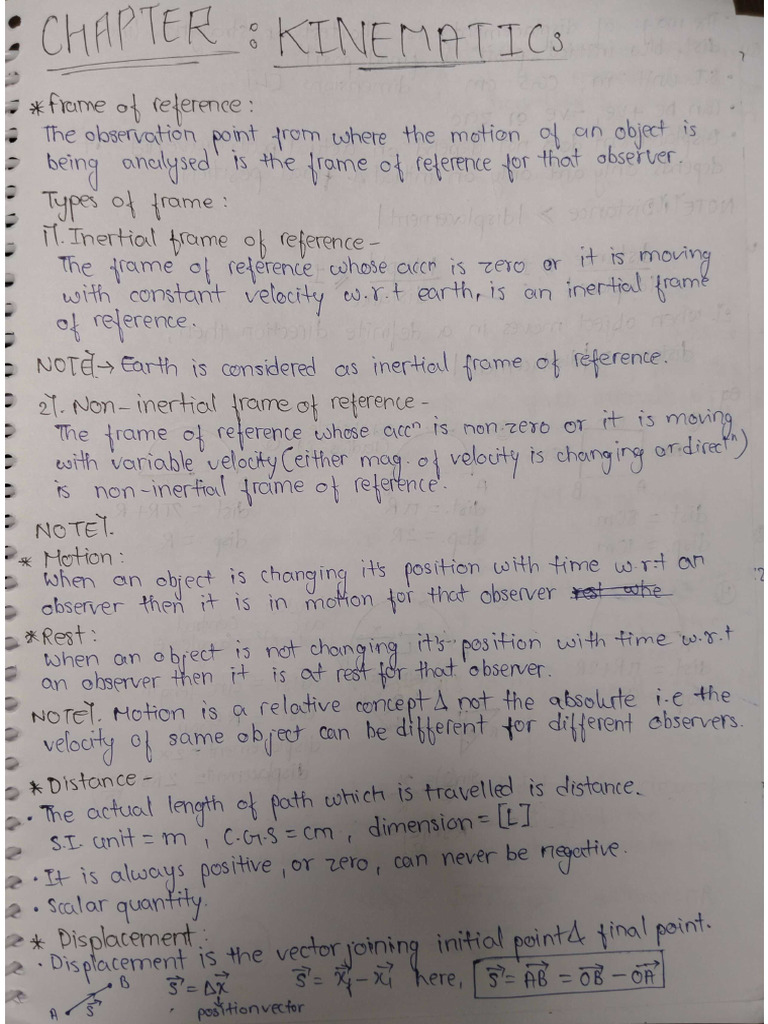 CHAPTER : KINEMATICs
* Frame of reference :
The observation point from where the motion of an object is
being analysed is the frame of reference for that observer.
Types of frame :
1). Inertial frame of reference -
The frame of reference whose accn is zero or it is moving
with constant velocity w.r.t earth, is an inertial frame
of reference.
NOTE). → Earth is considered as inertial frame of reference.
2). Non-inertial frame of reference -
The frame of reference whose accn is non-zero or it is moving
with variable velocity (either mag. of velocity is changing or directn)
is non-inertial frame of reference.
NOTE).
* Motion :
When an object is changing it's position with time w.r.t an
observer then it is in motion for that observer
* Rest :
When an object is not changing it's position with time w.r.t
an observer then it is at rest for that observer.
NOTE). Motion is a relative concept & not the absolute i.e the
velocity of same object can be different for different observers.
* Distance -
• The actual length of path which is travelled is distance.
S.I. unit = m , C.G.S = cm , dimension = [L]
• It is always positive, or zero, can never be negative.
• Scalar quantity.
* Displacement :
• Displacement is the vector joining initial point & final point.
A B S⃗ S⃗ = Δx⃗ S⃗ = x⃗f - x⃗i here, S⃗ = AB⃗ = OB⃗ - OA⃗
position vector